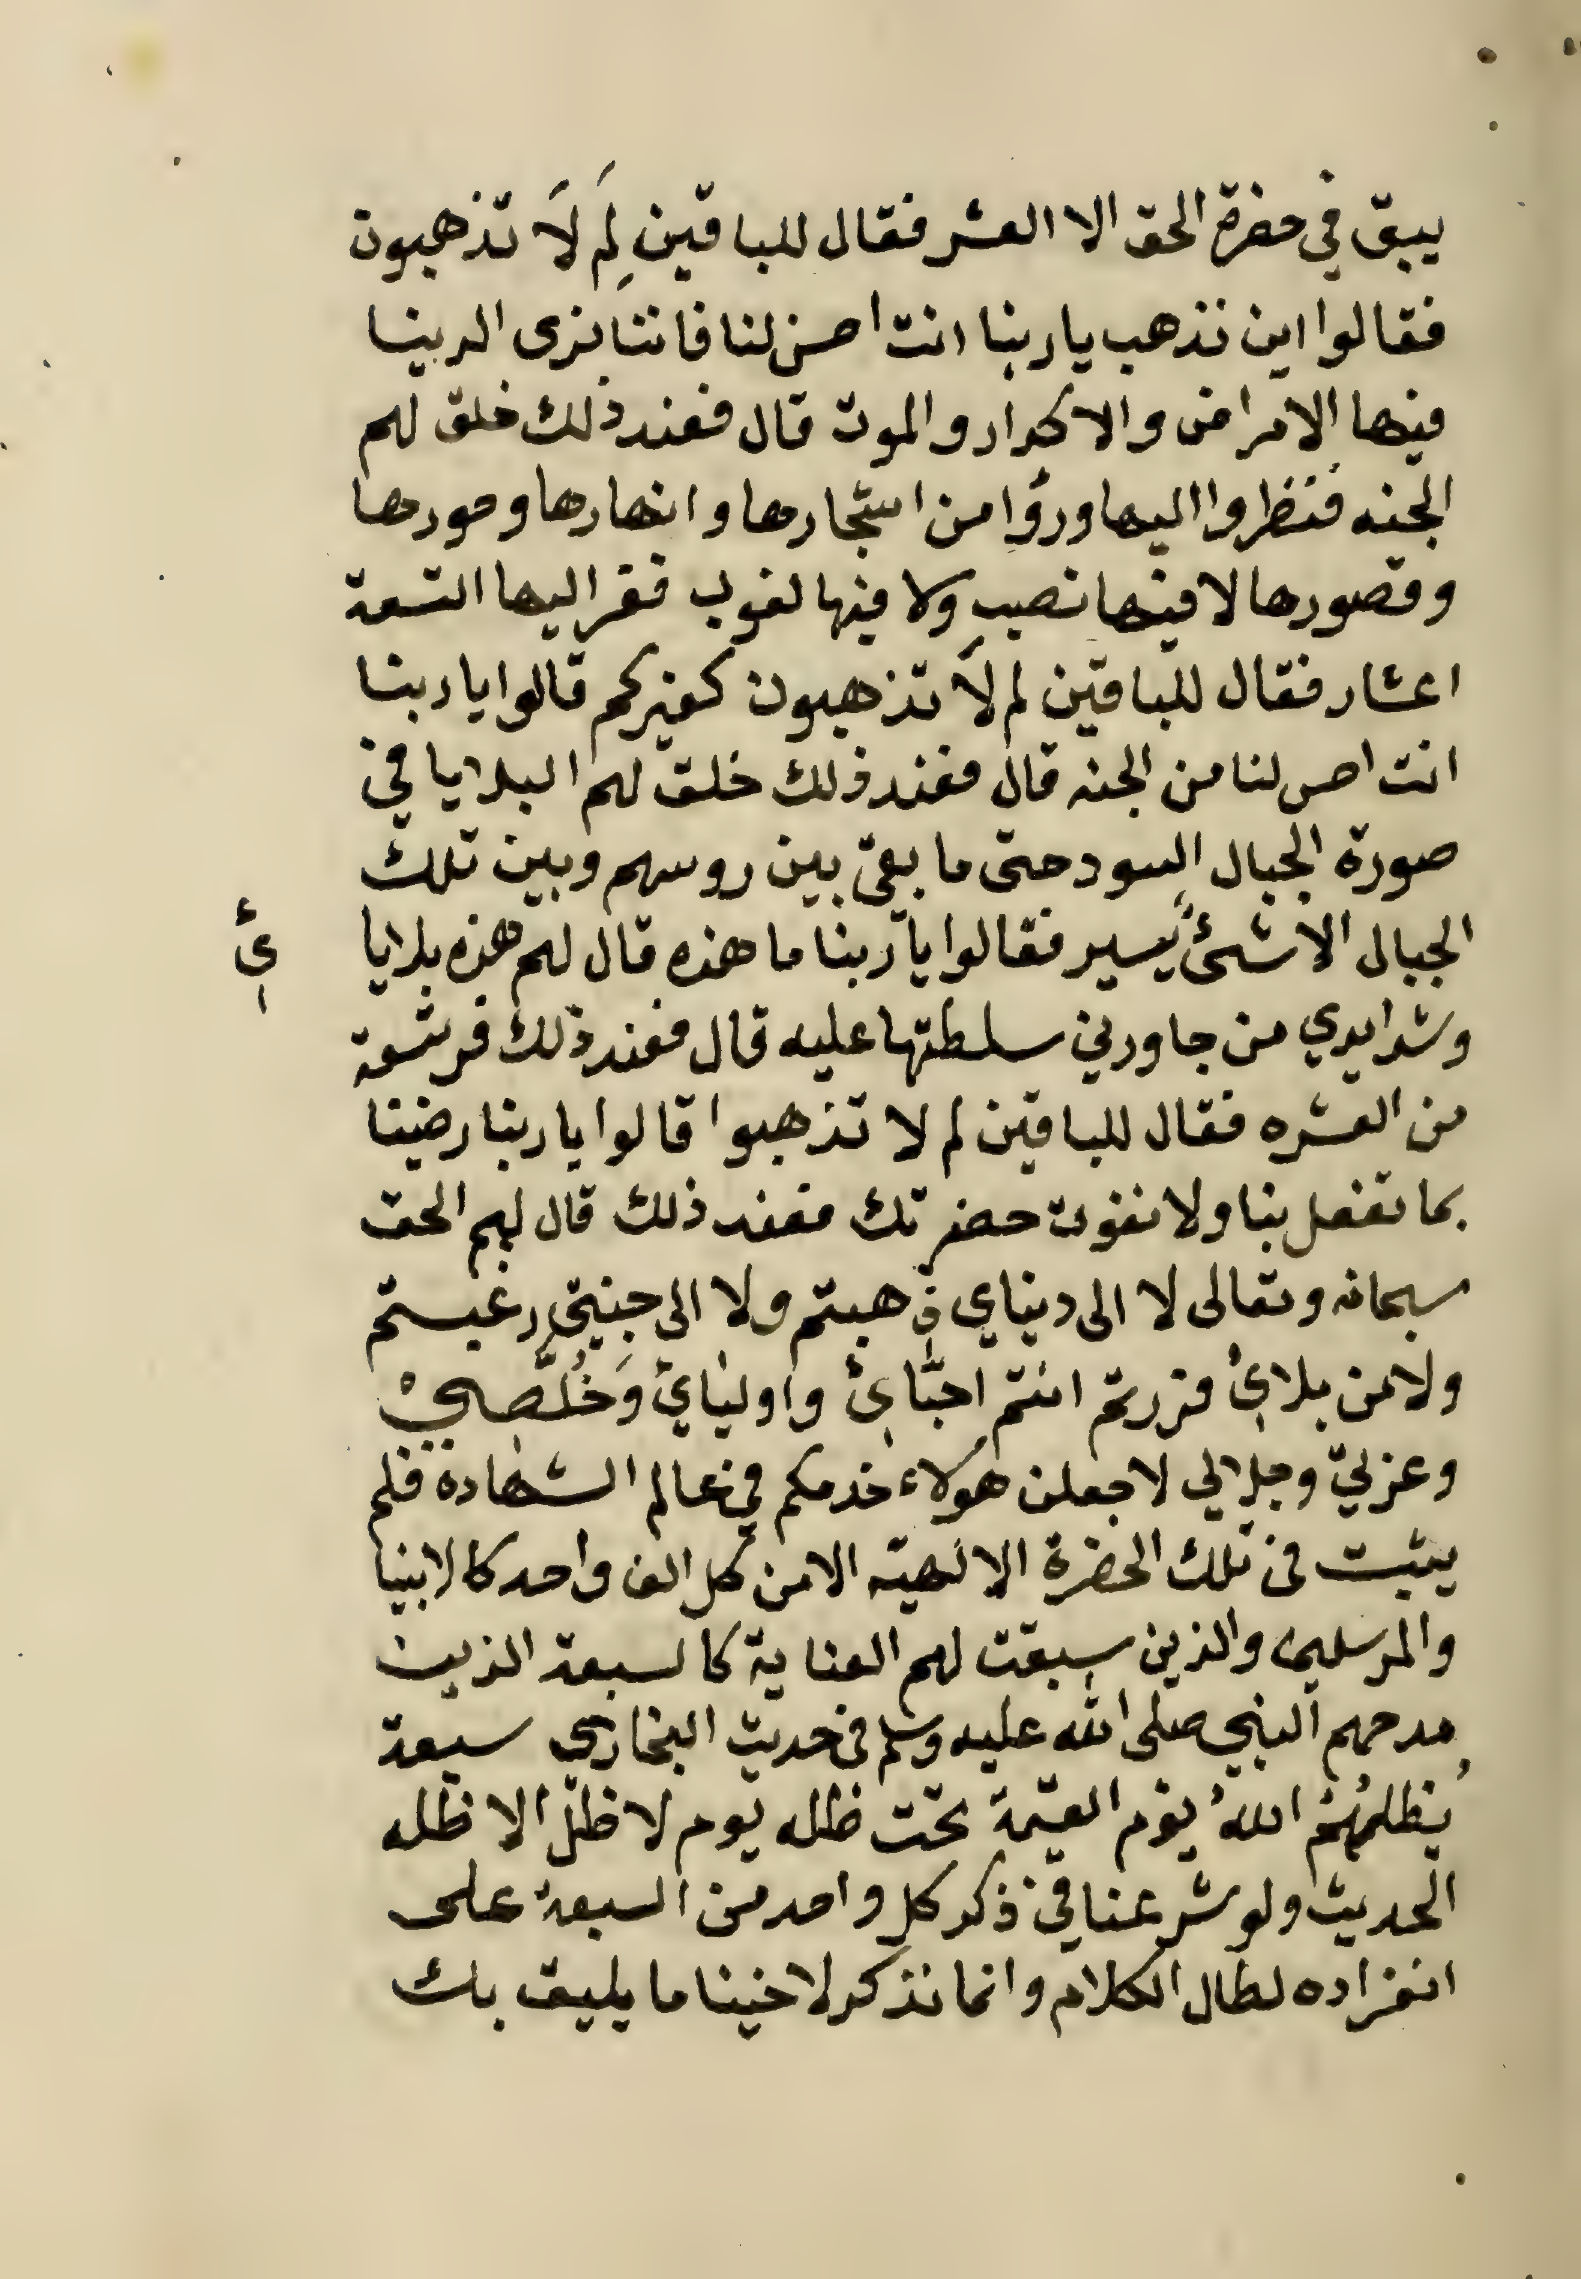 يبق في حضرة الحق الا العشر فقال للباقين لِمَ لَا تذهبون
فقالوا اين نذهب يا ربنا انت احسن لنا فاننا نرى الدينا
فيها الامراض والاكدار والموت قال فعند ذلك خلق لهم
الجنه فنظروا اليها ورؤا من اشجارها وانهارها وحورها
وقصورها لا فيها نصب ولا فيها لغوب ففر اليها التسعة
اعشار فقال للباقين لم لَا تذهبون كغيركم قالوا يا ربنا
انت احسن لنا من الجنه قال فعند ذلك خلق لهم البلايا في
صورة الجبال السود حتى ما بقي بين روسهم وبين تلك
الجبال الا شئ يسير فقالوا يا ربنا ما هذه قال لهم هذه بلايا
ئ
وشدايدي من جاورني سلطتها عليه قال فعند ذلك فر تسعة
من العشره فقال للباقين لم لا تذهبوا قالوا يا ربنا رضينا
بما تفعل بنا ولا نفوت حضرتك فعند ذلك قال لهم الحق
سبحانه وتعالى لا الى دنياي ذهبتم ولا الى جنتي رغبتم
ولا من بلائ فررتم انتم احبّائ واوليائ وَخُلَّصِيْ
وعزتي وجلالي لاجعلن هولاء خدمكم في عالم الشهادة فلم
يثبت في تلك الحضرة الالهية الا من كل الف واحد كالانبيا
والمرسلين والذين سبقت لهم العناية كالسبعة الذين
مدحهم النبي صلى الله عليه وسلم في حديث البخاري سبعة
يُظلهُمُ اللهُ يوم القيمة تحت ظله يوم لا ظلّ الا ظله
الحديث ولو شرعنا في ذكر كل واحد من السبعة على
انفراده لطال الكلام وانما نذكر لاخينا ما يليق بك